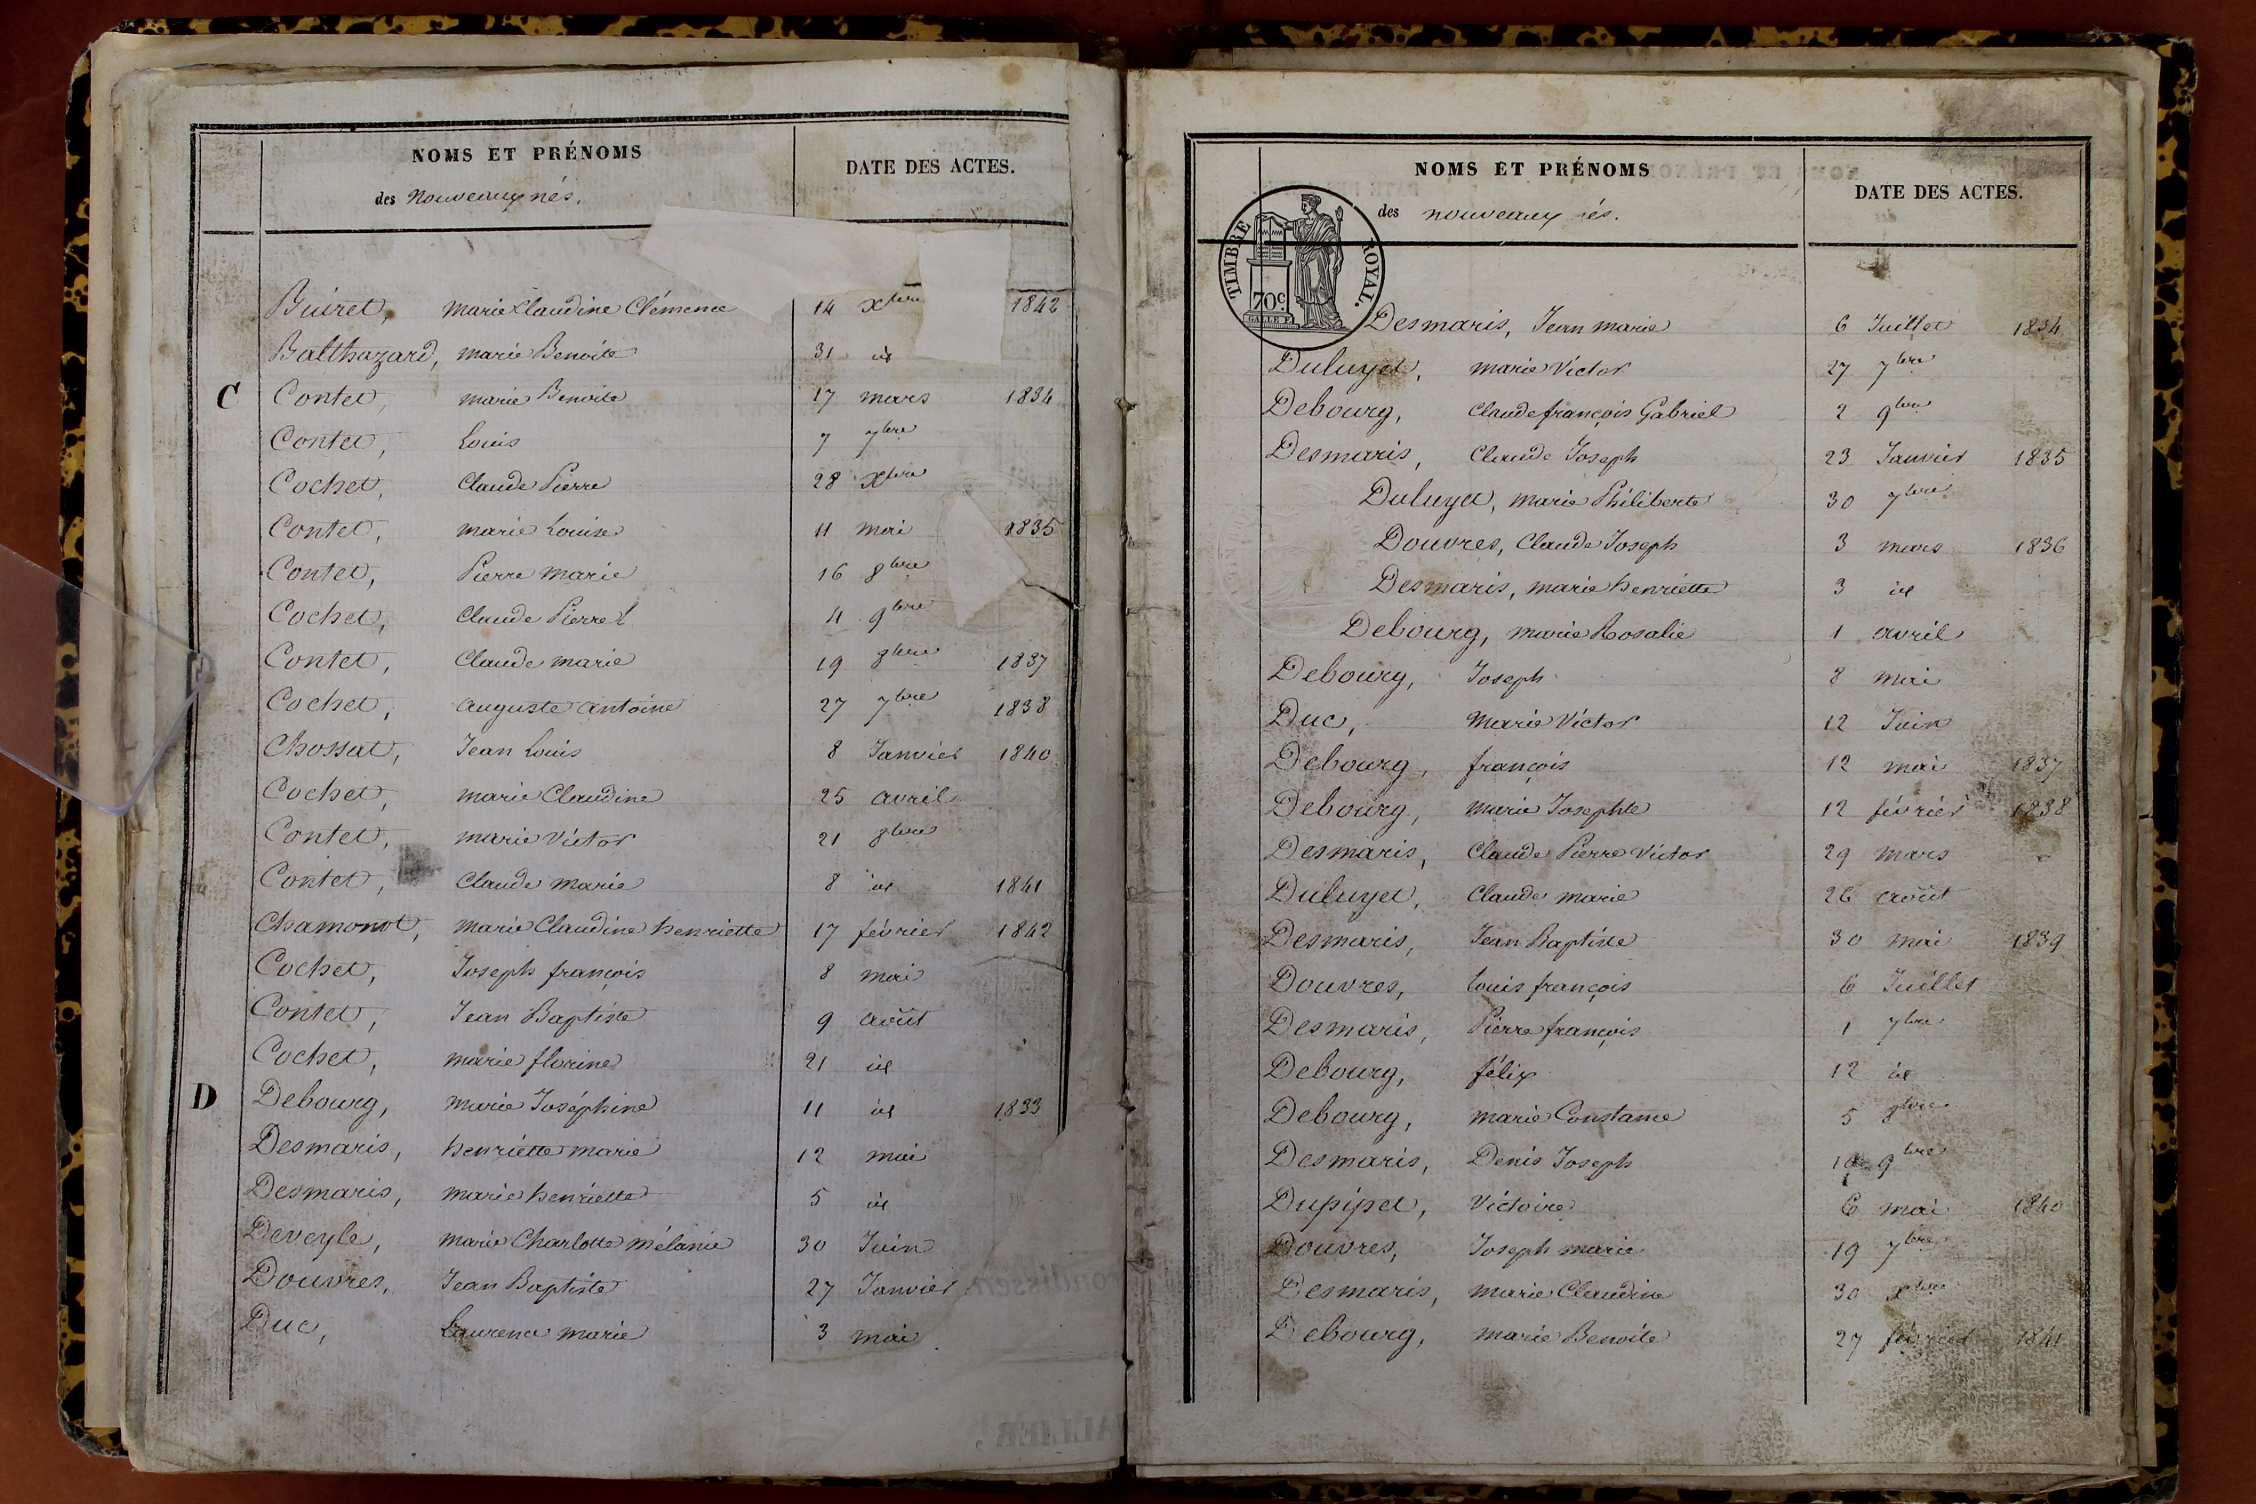 NOMS ET PRÉNOMS
des Nouveaux nés.
DATE DES ACTES.
Buiret, marie Claudine Clémence 14 Xbre 1842
Balthazard, marie Benoite 31 id
C Contet, marie Benoite 17 mars 1834
Contet, Louis 7 7bre
Cochet, Claude Pierre 28 Xbre
Contet, marie Louise 11 mai 1835
Contet, Pierre marie 16 8bre
Cochet, Claude Pierre 4 9bre
Contet, Claude marie 19 8bre 1837
Cochet, auguste antoine 27 7bre 1838
Chossat, Jean Louis 8 Janvier 1840
Cochet, marie Claudine 25 avril
Contet, marie Victor 21 8bre
Contet, Claude marie 8 id 1841
Chamonot, marie Claudine henriette 17 février 1842
Cochet, Joseph françois 8 mai
Contet, Jean Baptiste 9 août
Cochet, marie florine 21 id
D Debourg, marie Joséphine 11 id 1833
Desmaris, henriette marie 12 mai
Desmaris, marie henriette 5 id
Deveyle, marie Charlotte mélanie 30 Juin
Douvres, Jean Baptiste 27 Janvier
Duc, Laurence marie 3 mai
NOMS ET PRÉNOMS
des nouveaux nés.
DATE DES ACTES.
TIMBRE ROYAL.
70c
Desmaris, Jean marie 6 Juillet 1834
Duluyet, marie Victor 27 7bre
Debourg, Claude françois Gabriel 2 9bre
Desmaris, Claude Joseph 23 Janvier 1835
Duluyet, marie Philiberte 30 7bre
Douvres, Claude Joseph 3 mars 1836
Desmaris, marie henriette 3 id
Debourg, marie Rosalie 1 avril
Debourg, Joseph 8 mai
Duc, marie Victor 12 Juin
Debourg, françois 12 mai 1837
Debourg, marie Josephte 12 février 1838
Desmaris, Claude Pierre Victor 29 mars
Duluyet, Claude marie 26 août
Desmaris, Jean Baptiste 30 mai 1839
Douvres, Louis françois 6 Juillet
Desmaris, Pierre françois 1 7bre
Debourg, félix 12 id
Debourg, marie Constance 5 8bre
Desmaris, Denis Joseph 9bre
Dupipet, Victoire 6 mai 1840
Douvres, Joseph marie 19 7bre
Desmaris, marie Claudine 30 Xbre
Debourg, marie Benoite 27 février 1841